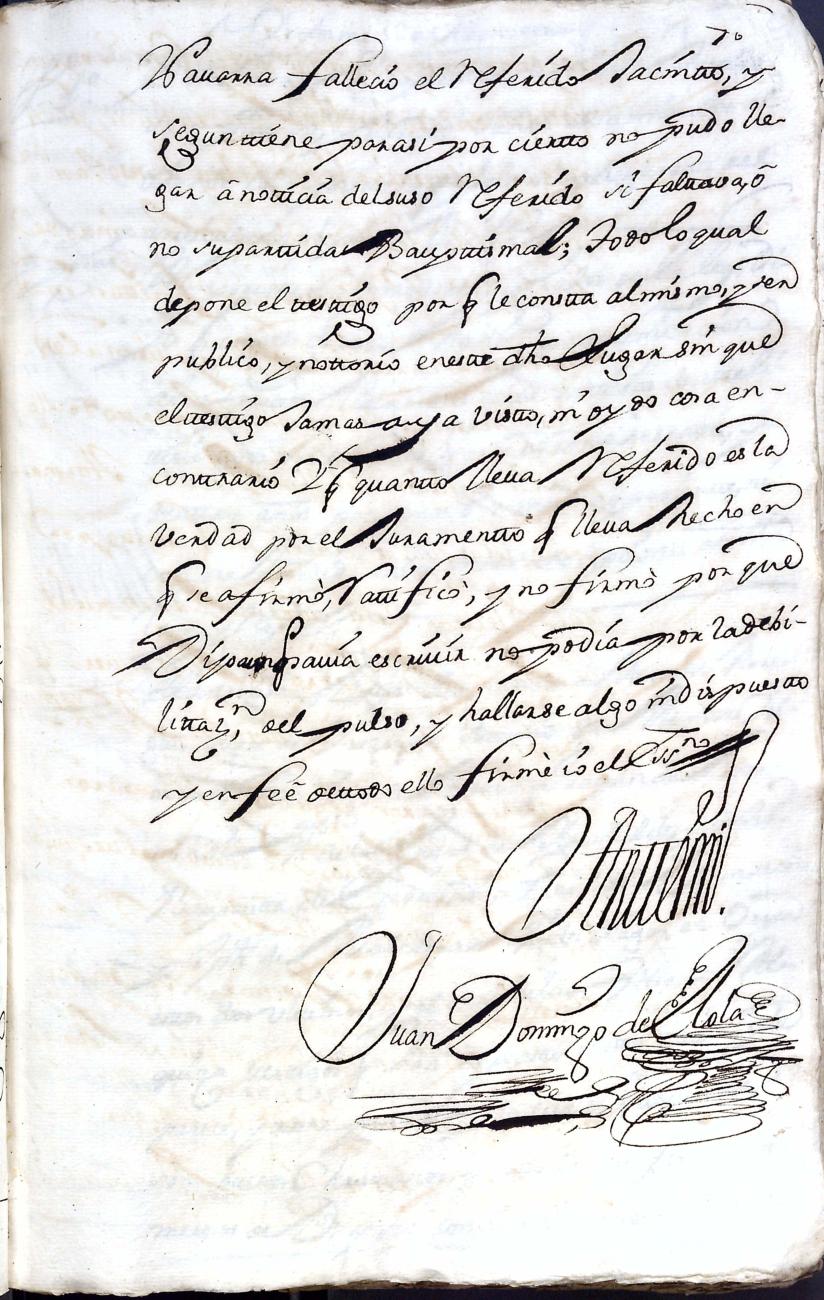 70
Navarra fallecio el Referido Jacintto, y
segun ttiene para si por ciertto no pudo lle-
gar â notticia del suso Referido si falttava, ô
no su parttida Baupttismal; Todo lo qual
depone el testtigo por q le constta al mismo, y ser
publico, y nottorio en estte dho Lugar sin que
el testtigo Jamas aya vistto, ni oydo cosa en-
conttrario Y q quantto lleva Referido es la
verdad por el Juramentto q lleva hecho en
q se afirmò, Rattificò, y no firmò por que
Dijo escrivir no podia por la debi-
litaz.n del pulso, y hallarse algo indispuestto
y en feê de ttodo ello firmè io el Ess.no
Antte mi.
Juan Domingo de Elola